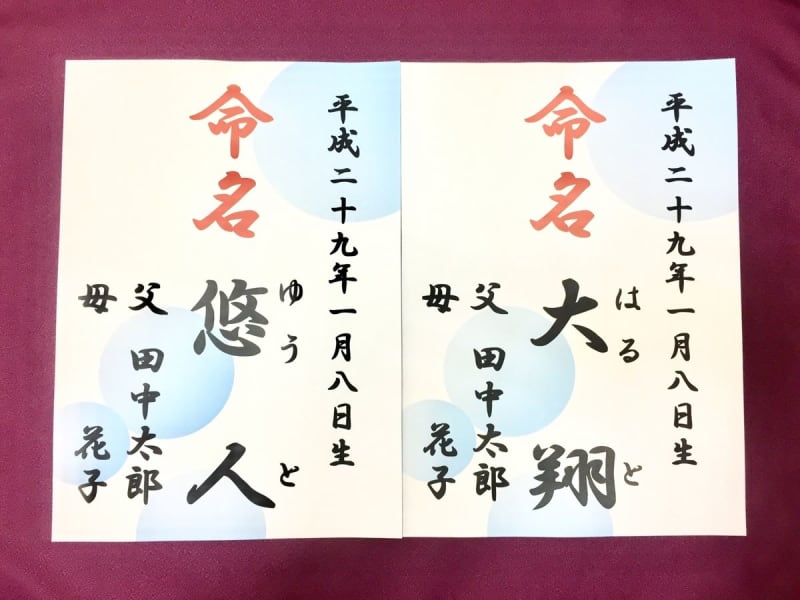 平成二十九年一月八日生
命名
はると
大翔
父 田中太郎
母 花子
平成二十九年一月八日生
命名
ゆうと
悠人
父 田中太郎
母 花子